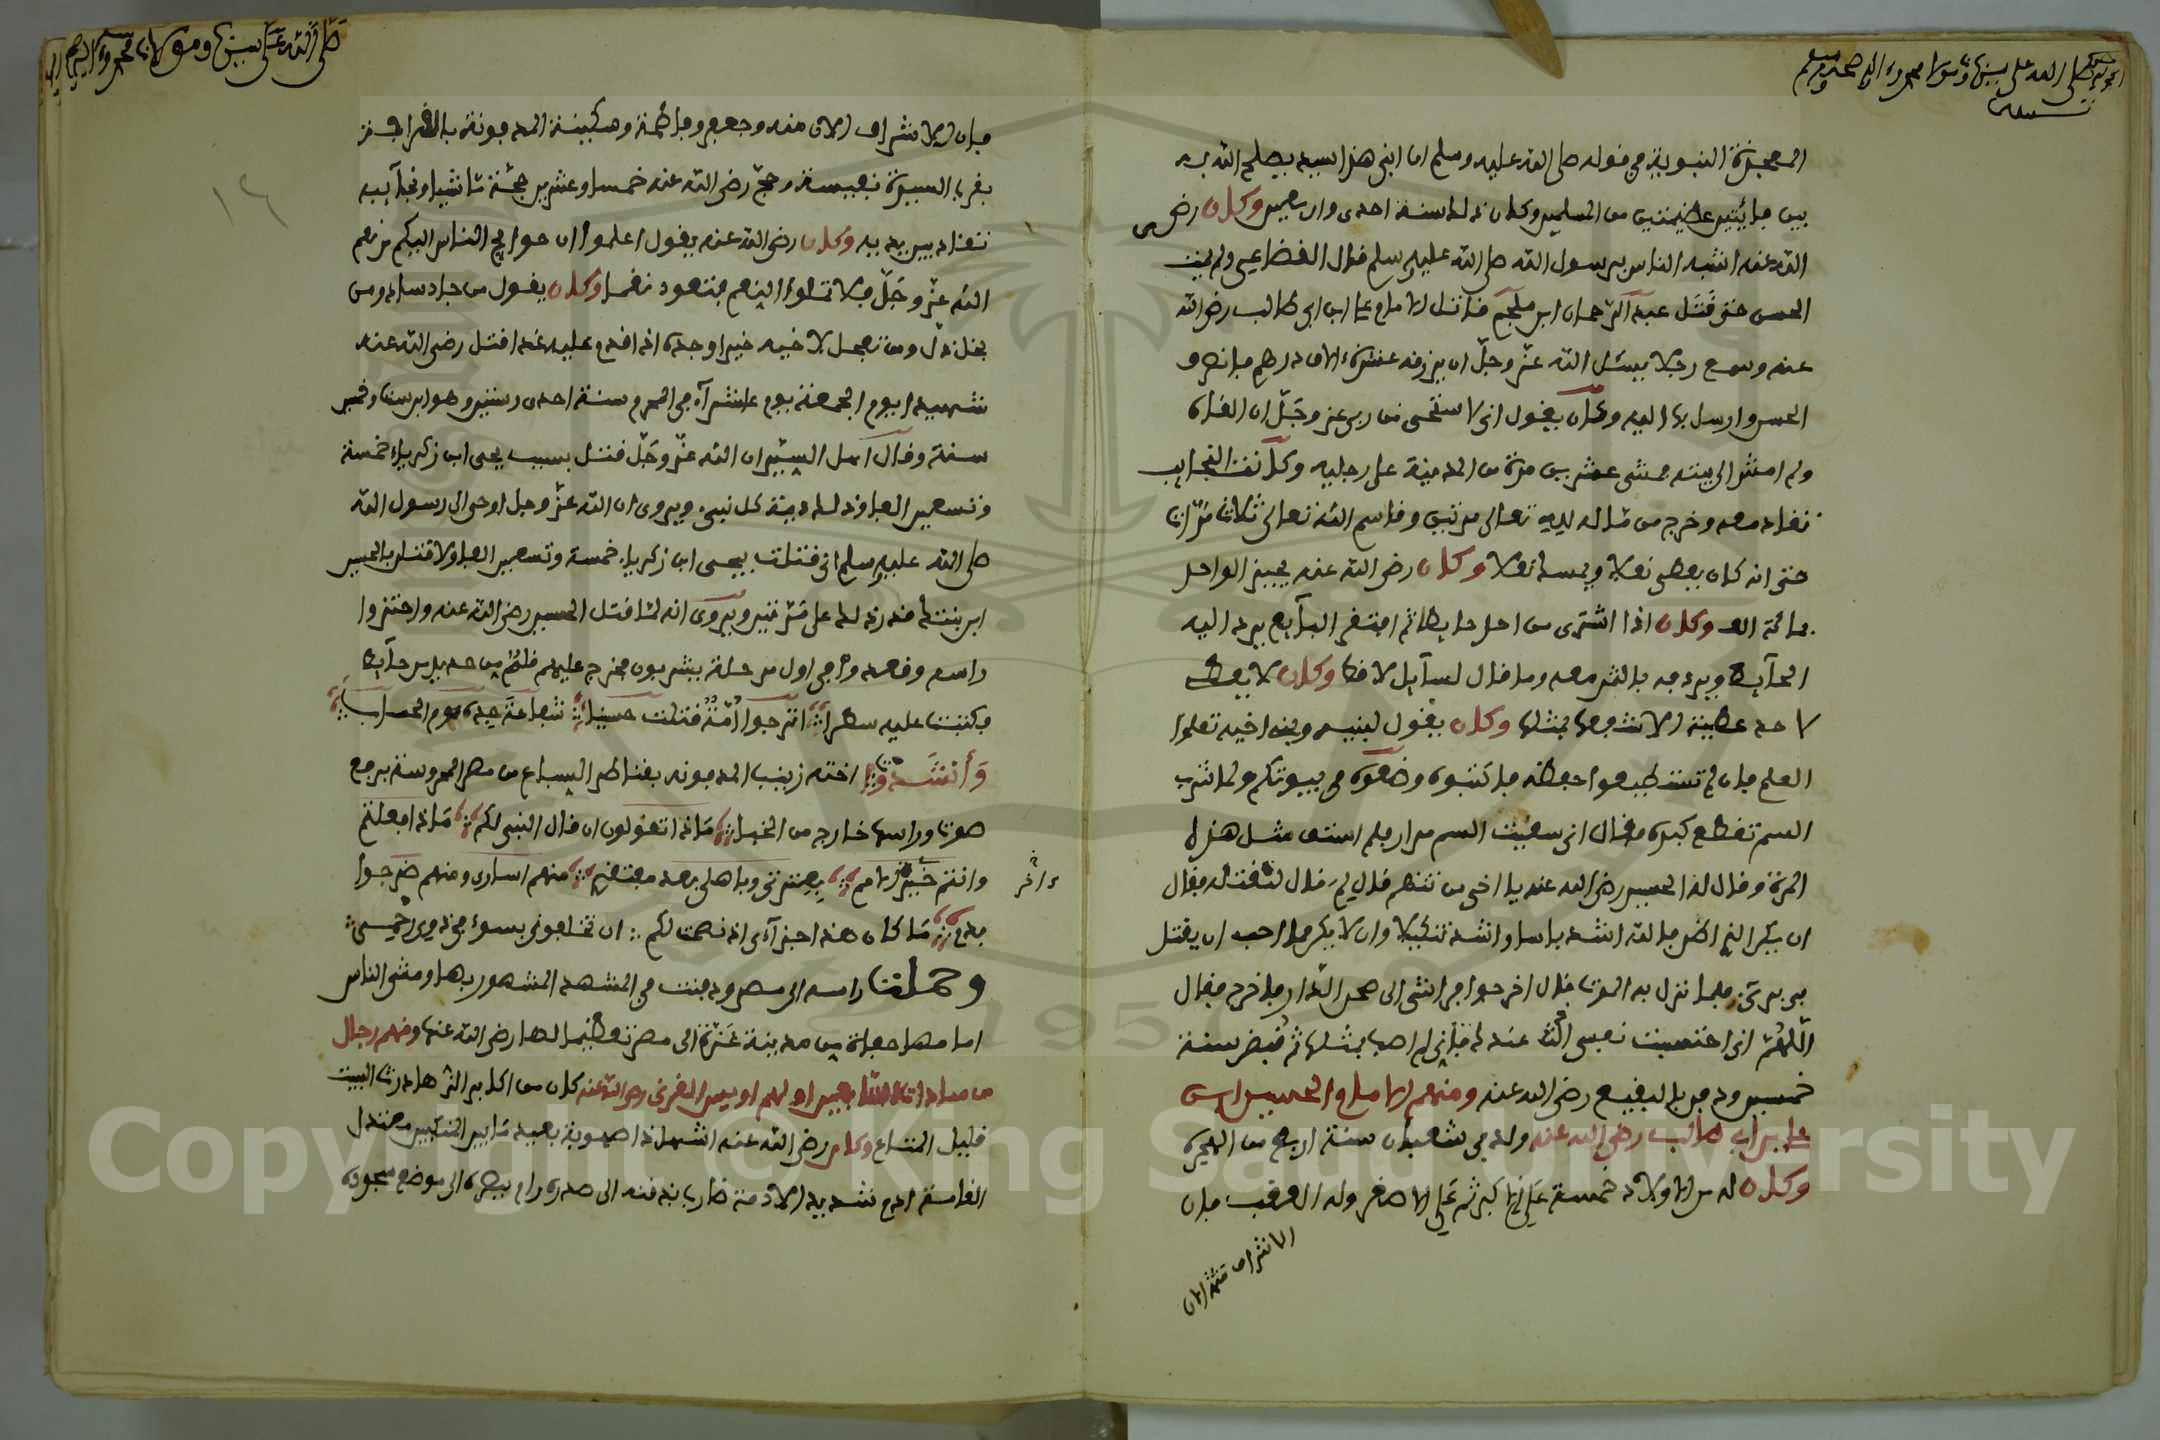 المعجزة النبوية في قوله صلى الله عليه وسلم ان ابني هذا سيد يصلح الله به
بين فائتين عظيمتين من المسلمين وكان ذلك سنة احدى واربعين وكان رضي
الله عنه اشبه الناس برسول الله صلى الله عليه وسلم قال القضاعي ولم يمت
الحسن حتى قتل عبد الرحمان ابن ملجم قاتل الامام علي ابن ابي طالب رضي الله
عنه وسمع رجلا يسئل الله عز وجل ان يرزقه عشرة ءالاف درهم فانصرف
الحسن وارسل بها اليه وكان يقول اني لاستحي من ربي عز وجل ان القاه
ولم امش الى بيته فمشى عشرين مرة من المدينة على رجليه وكانت النجايب
تقاد معه وخرج من ماله لله تعالى مرتين وقاسم الله تعالى ثلاث مرات
حتى انه كان يعطي نعلا ويمسك نعلا وكان رضي الله عنه يجيز الواحد
بمائة الف وكان اذا اشترى من احد حايطا ثم افتقر البايع يرد اليه
الحايط ويردفه بالثمن معه وما قال لسايل لا قط وكان لا يعطي
لاحد عطية الا شفعها بمثلها وكان يقول لبنيه وبني اخيه تعلموا
العلم فان لم تستطيعوا حفظه فاكتبوه وضعوه في بيوتكم ولما شرب
السم تقطع كبده فقال اني سقيت السم مرار فلم استق مثل هذه
المرة وقال له الحسين رضي الله عنه يا اخي من تتهم قال لم قال لتقتله فقال
ان يكن الذي اظن فالله اشد باسا واشد تنكيلا وان لا يكن فما احب ان يقتل
بي بريء فلما نزل به الموت قال اخرجوا فراشي الى صحن الدار فاخرج فقال
اللهم اني احتسبت نفسي عندك فاني لم اصب بمثلها ثم قبض سنة
خمسين ودفن بالبقيع رضي الله عنه ومنهم الامام الحسين ابن
علي بن ابي طالب رضي الله عنه ولد في شعبان سنة اربع من الهجرة
وكان له من الاولاد خمسة علي الاكبر ثم علي الاصغر وله العقب فان
الاشراف
فان الاشراف الان منه وجعفر وفاطمة وسكينة المدفونة بالقرافة
بقرب السيدة نفيسة وحج رضي الله عنه خمسا وعشرين حجة ماشيا ونجايبه
تقاد بين يديه وكان رضي الله عنه يقول اعلموا ان حوايج الناس اليكم من نعم
الله عز وجل فلا تملوا النعم فتعود نقما وكان يقول من جاد ساد ومن
بخل ذل ومن تعجل لاخيه خيرا وجده اذا قدم عليه غدا قتل رضي الله عنه
شهيدا يوم الجمعة يوم عاشرآء في المحرم سنة احدى وستين وهو ابن ست وخمسين
سنة وقال اهل السير ان الله عز وجل قتل بسبب يحيى ابن زكرياء خمسة
وتسعين الفا وذلك دية كل نبيء ويروى ان الله عز وجل اوحى الى رسول الله
صلى الله عليه وسلم اني قتلت بيحيى ابن زكرياء خمسة وتسعين الفا ولاقتلن بالحسين
ابن بنتك قدر ذلك على مرتين ويروى انه لما قتل الحسين رضي الله عنه واحتزوا
راسه وقعدوا في اول مرحلة يشربون فخرج عليهم قلم من حديد من حايط
فكتب عليه سطرا اترجوا امة قتلت حسينا شفاعة جده يوم الحساب
وانشدت اخته زينب المدفونة بقناطر السباع من مصر المحروسة برفع
صوت وراسها خارج من الخباء ماذا تقولون ان قال النبي لكم ماذا فعلتم
وانتم خير الامم بعترتي وباهلي بعد مفتقدي منهم اسارى ومنهم ضرجوا
بدم ما كان هذا جزآءي اذ نصحت لكم ان تخلفوني بسوء في ذوي رحمي
وحملت راسه الى مصر ودفنت في المشهد المشهور بها ومشى الناس
امامها حفاة من مدينة غزة الى مصر تعظيما لها رضي الله عنه ومنهم رجال
اويس القرني رضي الله عنه كان من اكابر الزهاد رث البيت
قليل المتاع وكان رضي الله عنه اشهل ذا صهوبة بعيد ما بين المنكبين معتدل
القامة ادم شديد الادمة ضاربا بذقنه الى صدره رام ببصره الى موضع سجوده